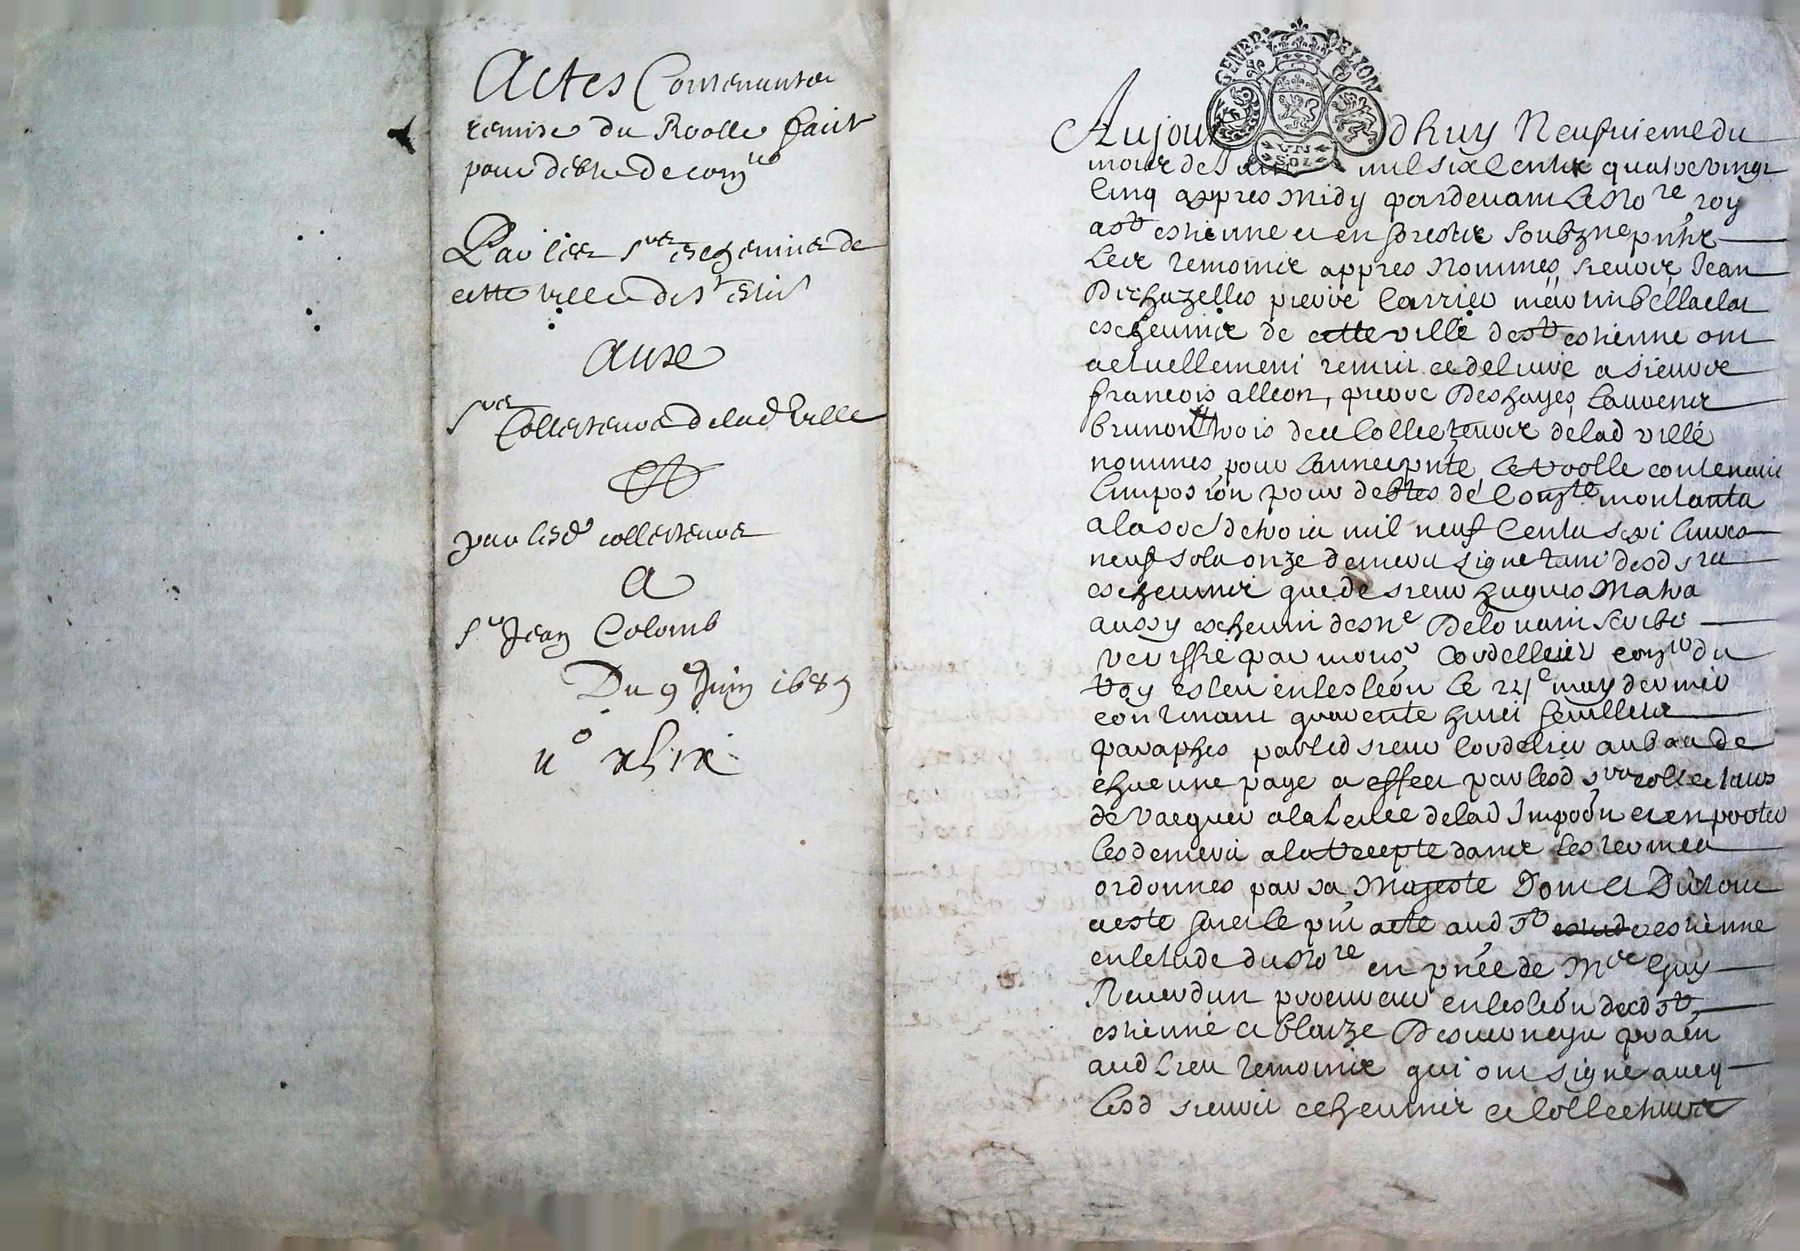 Actes Contenants
remise du Roolle fait
pour debte de com^té
Par les s^rs eschevins de
cette ville de S^t Esti^e
aux
s^rs Collecteurs de lad ville
par lesd collecteurs
A
s^r Jean Colomb
Du 9^e Juin 1685
n^o xlix
GENER DE LYON
UN
SOL
Aujourdhuy Neufviemedu
mois de Juin mil six Centz quatre vingt
Cinq appres midy pardevant le No^re roy
a S^t estienne et en forestz soubzne p^nts
les temoins appres nommes sieurs Jean
Deschazelles pierre Carrier
eschevins de cette ville de S^t estienne ont
actuellement remis et delivre a sieurs
francois alleon, pierre Deshayes, Laurens
brunon trois des Collecteurs de lad ville
nommes pour lannee p^nte le roolle contenant
limpo^sion pour debtes de Com^te montant a
a la so^e de trois mil neuf Centz livres
neuf solz onze deniers signe tant desd srs
eschevins que de sieur hugues
aussy eschevin de S^e
veriffie par mons^r Cordellier con^er du
Roy esleu en lesleon le 24^e may dernier
contenant quarente huict feuilletz
paraphes par led sieur Cordelier au bas de
chacune page a effect par lesd s^rs collecteurs
de vacquer a la levee de lad Impoon et en porter
les deniers a la recepte dans les termes
ordonnes par sa Majeste Dont et Du tout
a este faict le p^nt acte aud S^t estienne
en letude du No^re en p^nce de M^re Guy
Reverdun procureur en lesleon dud S^t
estienne et blaize praen
aud lieu temoins qui ont signe avecq
lesd sieurs eschevins et Collecteurs